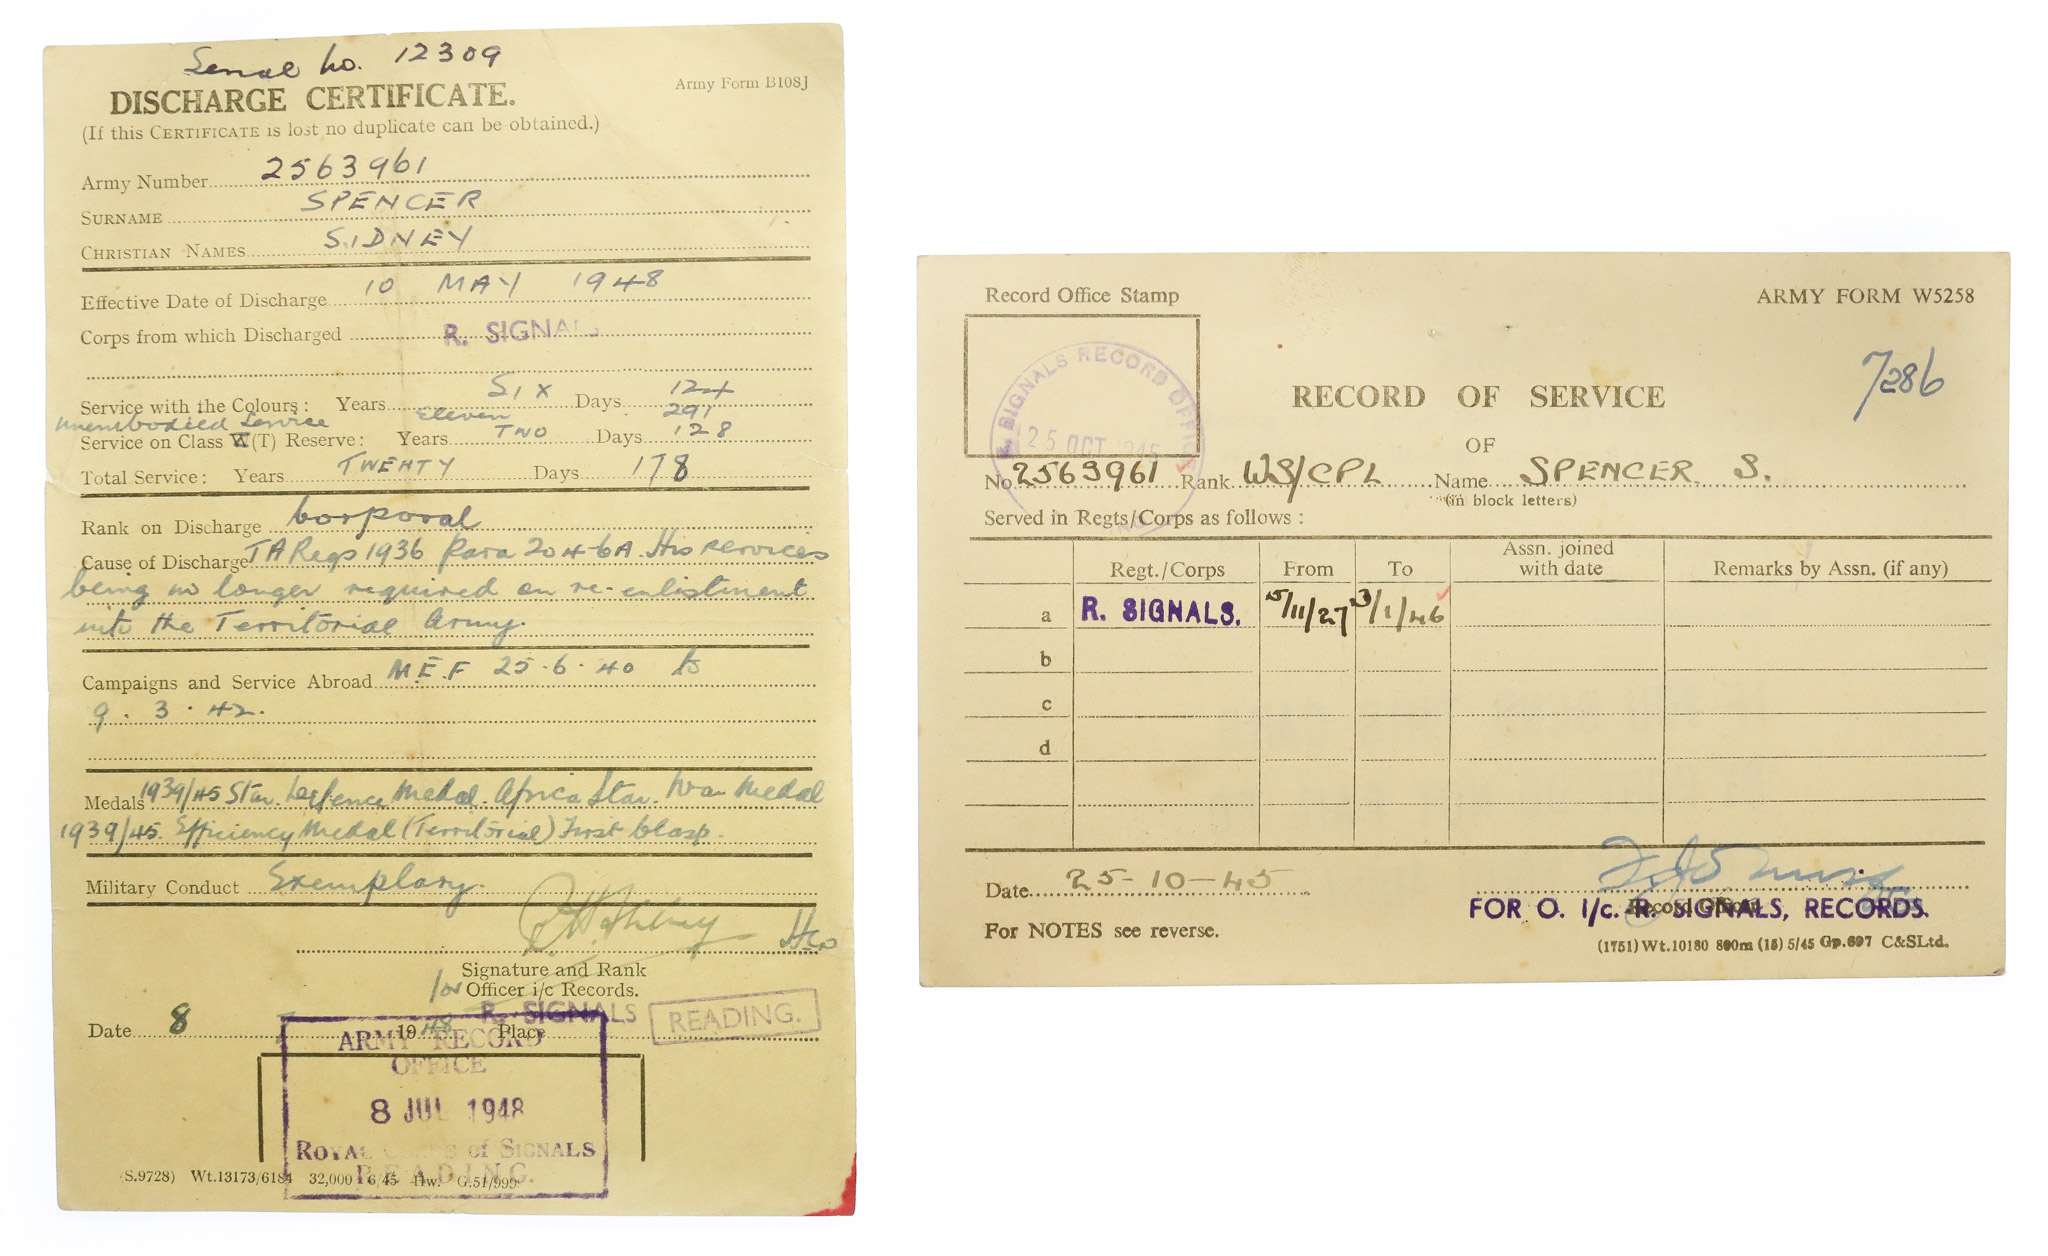 Serial No. 12309
DISCHARGE CERTIFICATE.
Army Form B108J
(If this CERTIFICATE is lost no duplicate can be obtained.)
Army Number 2563961
SURNAME SPENCER
CHRISTIAN NAMES SIDNEY
Effective Date of Discharge 10 MAY 1948
Corps from which Discharged R. SIGNALS
Service with the Colours: Years SIX Days 124
Unembodied Service Eleven 291
Service on Class W(T) Reserve: Years TWO Days 128
Total Service: Years TWENTY Days 178
Rank on Discharge Corporal
Cause of Discharge TA Regs 1936 Para 204-6A. His services
being no longer required on re-enlistment
into the Territorial Army.
Campaigns and Service Abroad M.E.F 25.6.40 to
9.3.42.
Medals 1939/45 Star. Defence Medal. Africa Star. War Medal
1939/45. Efficiency Medal (Territorial) First Clasp.
Military Conduct Exemplary.
Signature and Rank
for Officer i/c Records.
R. SIGNALS
READING.
Date 8 1948 Place
ARMY RECORD
OFFICE
8 JUL 1948
ROYAL CORPS of SIGNALS
READING.
(S.9728) Wt.13173/6184 32,000 6/45 Hw. G.51/999
Record Office Stamp
ARMY FORM W5258
R. SIGNALS RECORD OFFICE
25 OCT 1945
7286
RECORD OF SERVICE
OF
No. 2563961 Rank WS/CPL Name SPENCER S.
(in block letters)
Served in Regts/Corps as follows :
Regt./Corps From To Assn. joined with date Remarks by Assn. (if any)
a R. SIGNALS. 15/11/27 3/1/46
b
c
d
Date 25-10-45
Record Officer
FOR O. I/c. R. SIGNALS, RECORDS.
For NOTES see reverse.
(1751) Wt.10180 800m (15) 5/45 Gp.697 C&SLtd.